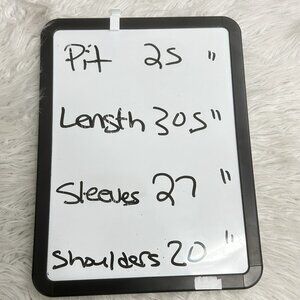 Pit 25 "
Length 30.5"
Sleeves 27 "
Shoulders 20 "